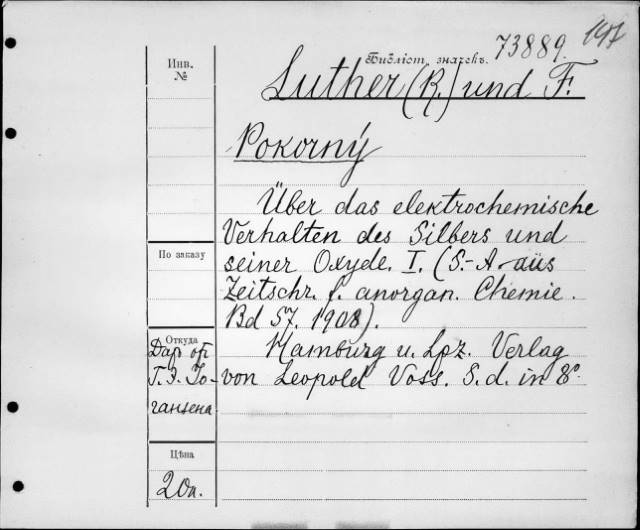 73889.
Библіот. значекъ.
Инв.
№
Luther (R.) und F.
Pokorný
Über das elektrochemische
Verhalten des Silbers und
seiner Oxyde. I. (S.-A. aüs
Zeitschr. f. anorgan. Chemie.
Bd 57. 1908).
Hamburg u. Lpz. Verlag
von Leopold Voss. S. d. in 8º.
По заказу
Откуда
Даръ отъ
Г. Э. Іо-
гансена
Цѣна
20к.